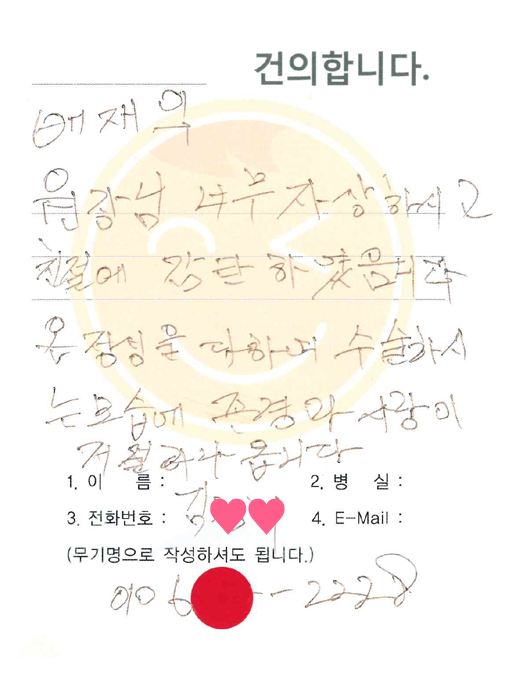 건의합니다.
배재익
원장님 너무 자상하시고
친절에 감탄 하였읍니다
온 정성을 다하며 수술하시
는 모습에 존경과 사랑이
저절로 나옵니다
1. 이 름 :
2. 병 실 :
김
3. 전화번호 :
4. E-Mail :
(무기명으로 작성하셔도 됩니다.)
010 6 - 2228